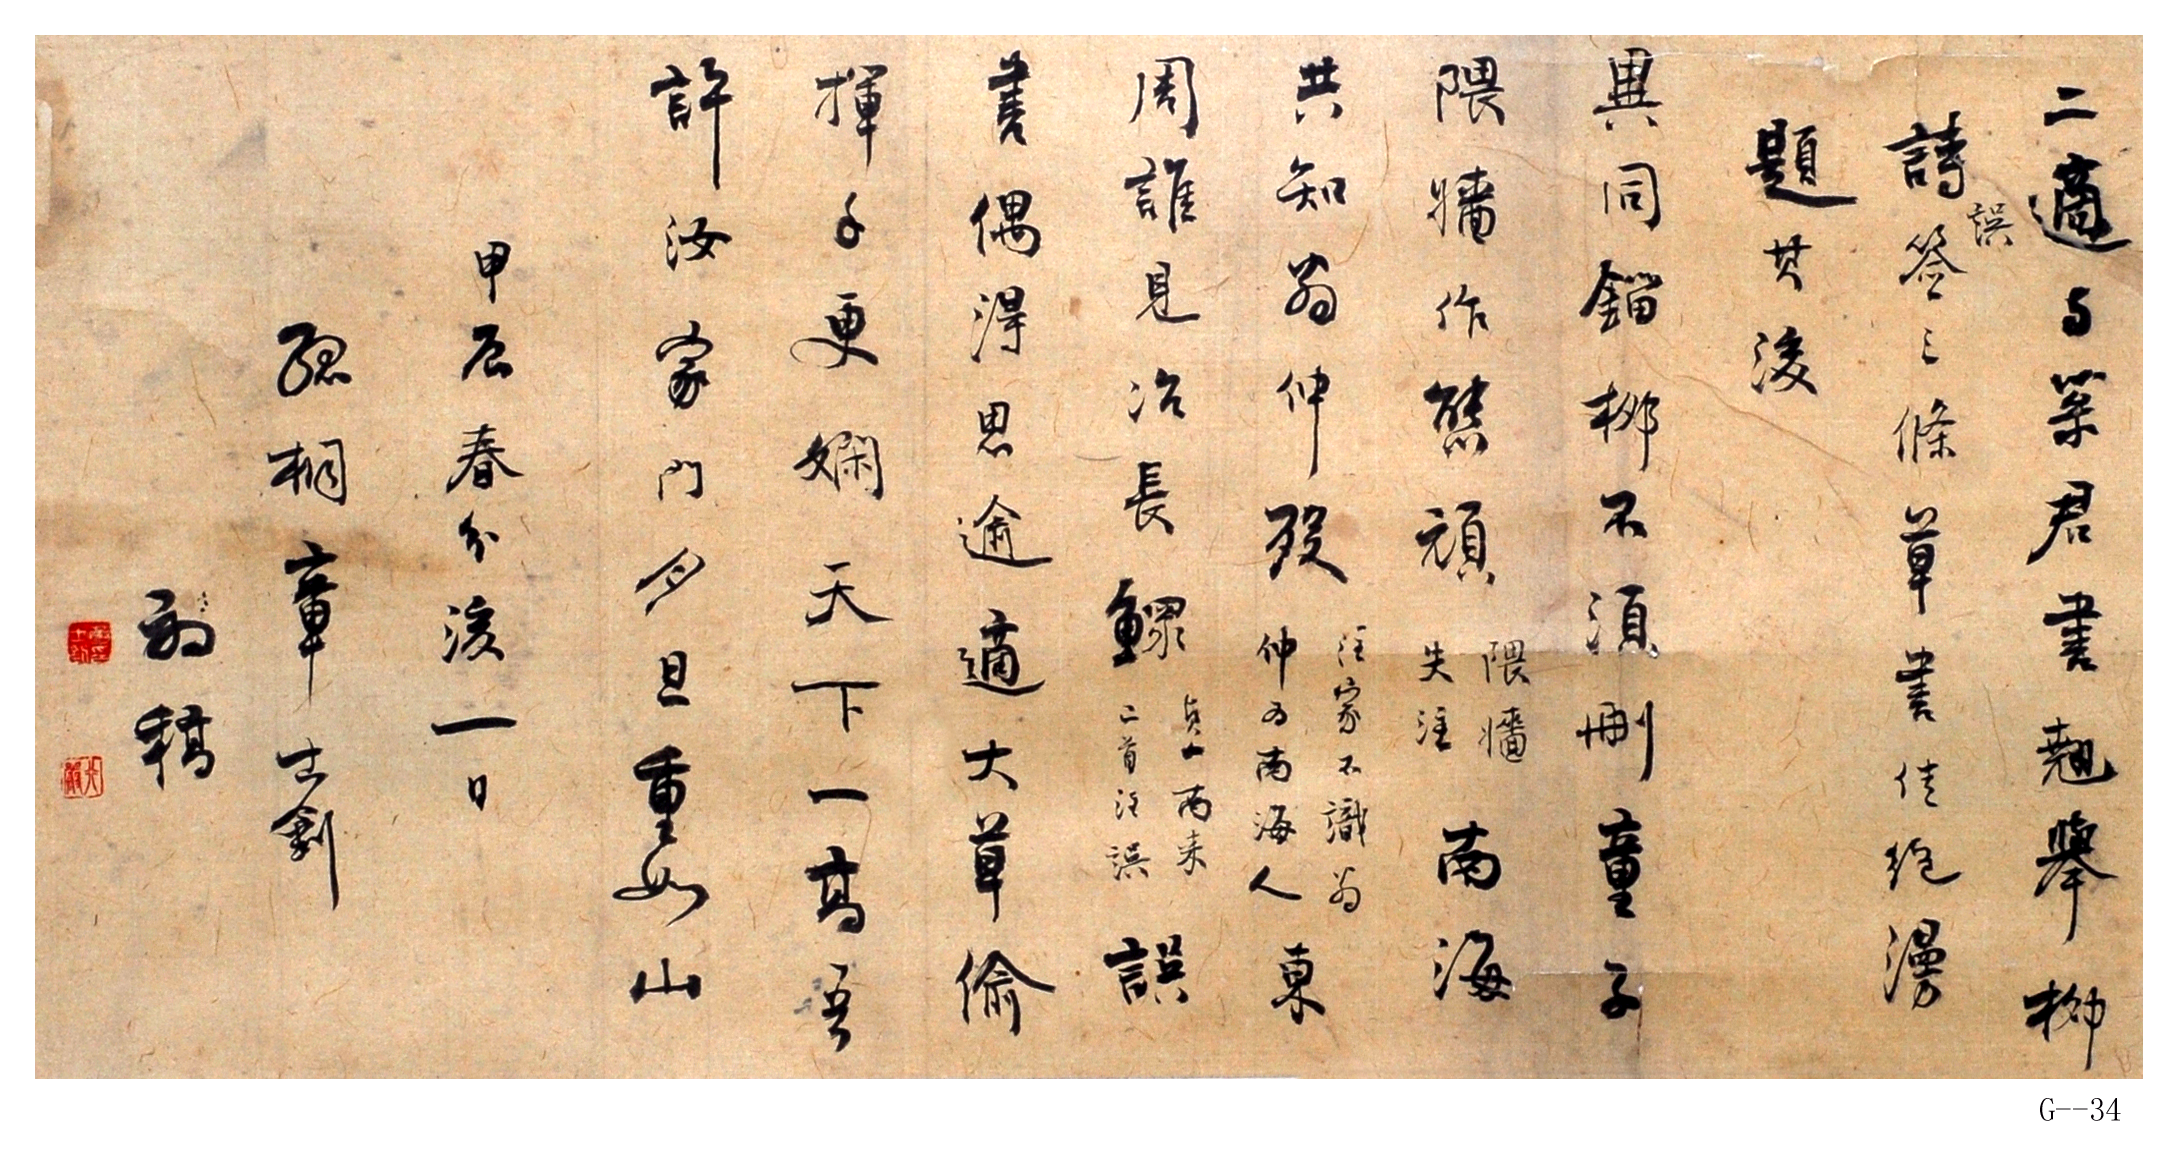 二適与某君書翹舉柳
詩誤簽三條草書佳絕漫
題其後
異同錙柳不須刪童子
隈牆作態頑隈牆失注南海
共知翁仲歿注家不識翁仲为南海人東
周誰見冶長鰥貞一两来二首注誤誤
書偶得思逾適大草偷
揮手更嫻天下一高吾
許汝家門夕旦重如山
甲辰春分後一日
孤桐章士釗
初稿
G--34